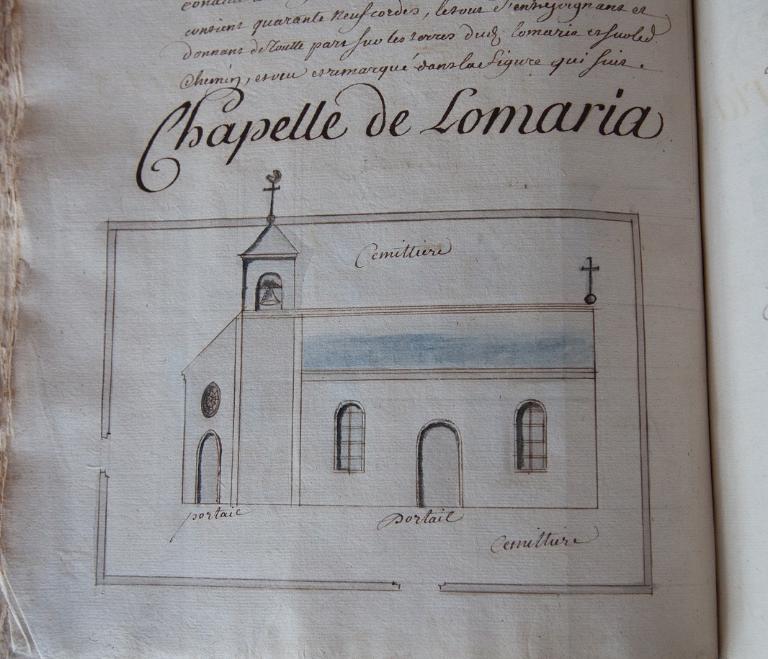 contient quarante neuf cordes, le tout s'entrejoignant et
donnant de toutte part sur les terres dud. lomaria et sur led.
Chemin, et veu et remarqué dans la figure qui suit.
Chapelle de Lomaria
Cemittiere
portail
portail
Cemittiere